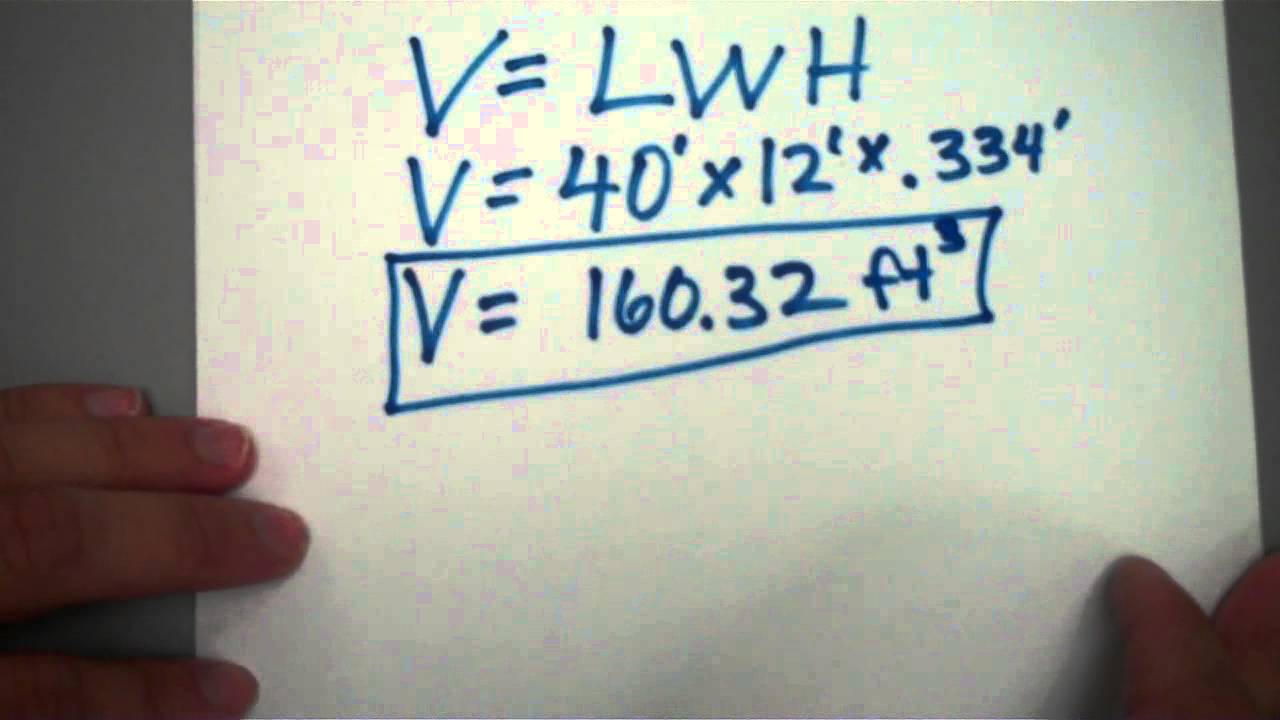 V = L W H
V = 40' x 12' x .334'
V = 160.32 ft³